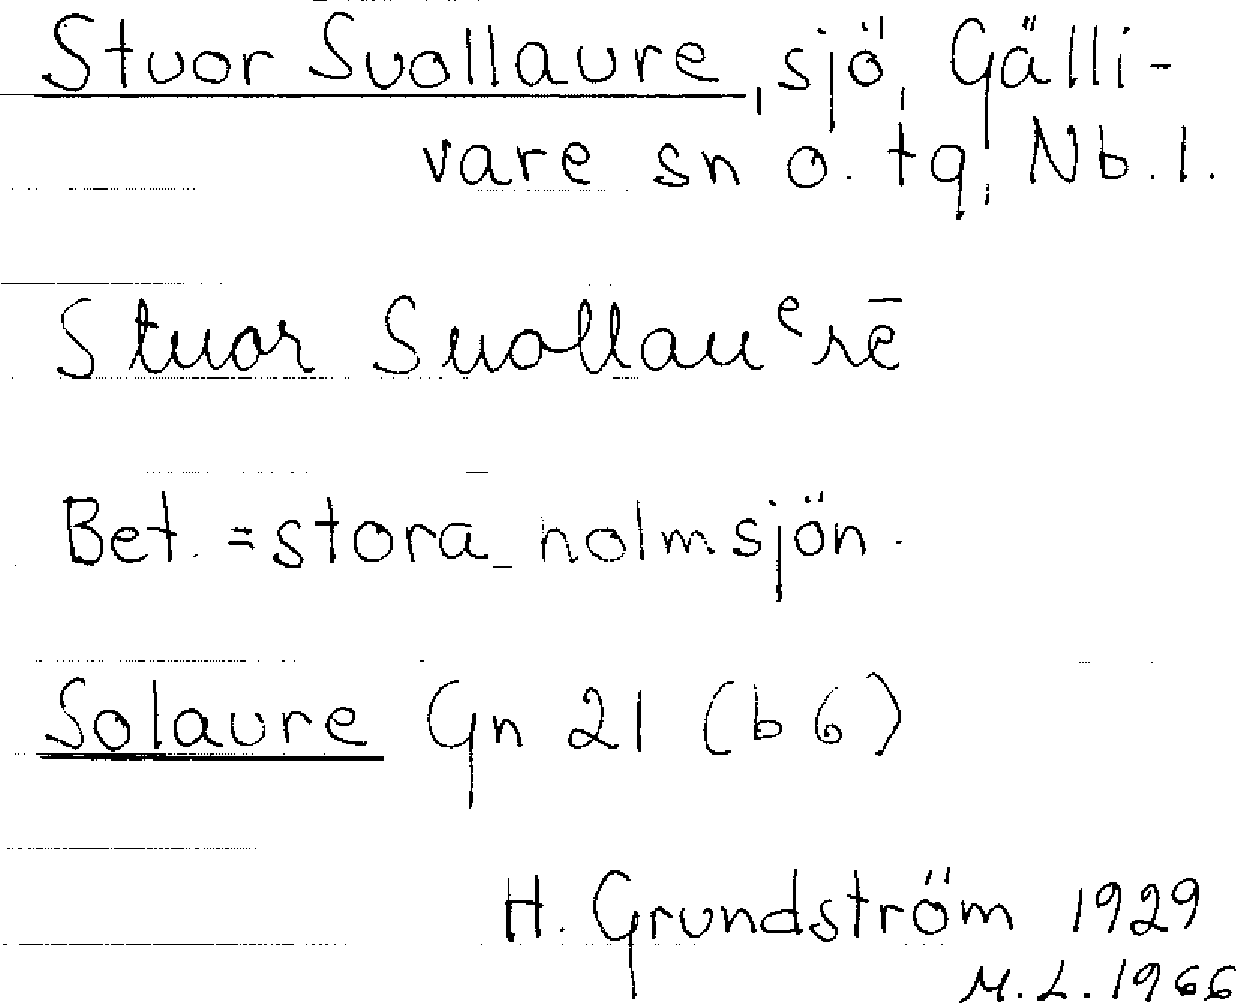 Stuor Suollaure, sjö, Gälli-
vare sn o. tg, Nb. l.
Stuor Suollauᵉrē
Bet. = stora holmsjön.
Solaure Gn 21 (b 6)
H. Grundström 1929
M. L. 1966